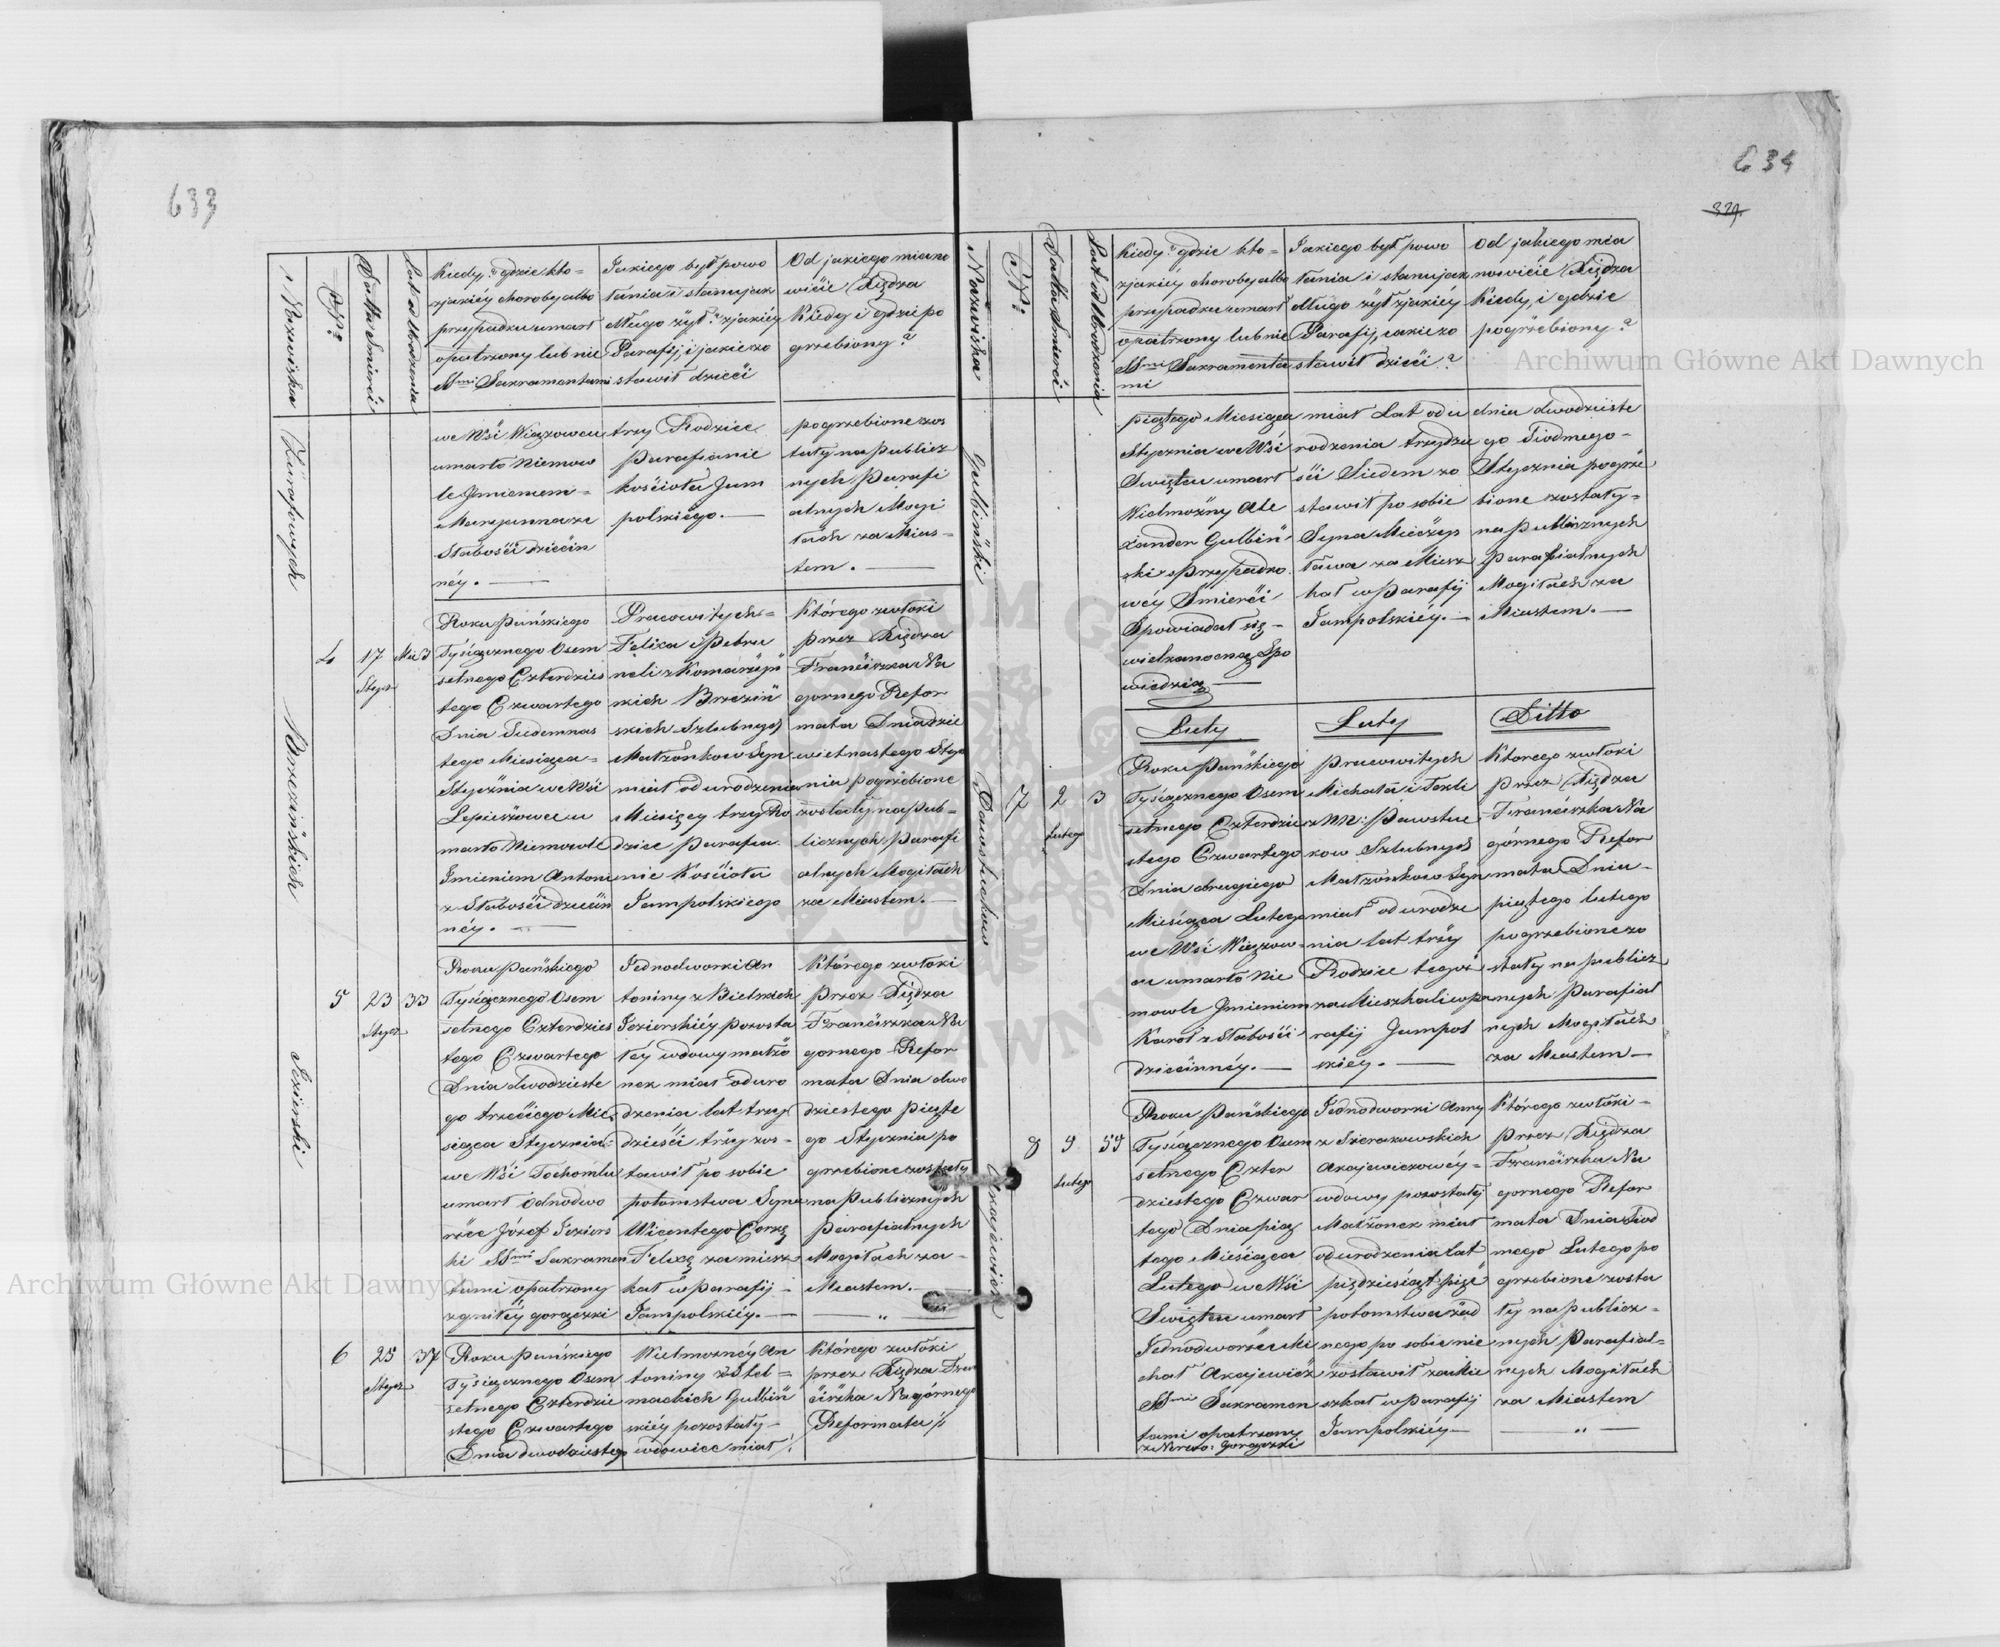 633
Nazwiska
Data Smierci
Lat od Urodzenia
Kiedy? gdzie kto =
zjakiéy choroby albo
przypadku umarł
opatrzony lub nie
SSmi Sakramentami
Jakiego był powo
łania i stanu jak
długo żył? zjakiéy
Parafij, i jakie zo
stawił dzieći
Od jakiego miano
wićie Xiędza
Kiedy i gdzie po
grzebiony?
we Wśi Wiązowcu
umarło Niemow
le Jmieniem =
Maryanna ze
Słabośći dziećin
néy. —
trzy Rodzice
Parafianie
kośćioła Jam
polskiego. —
pogrzebione zos
tały na Publicz
nych Parafi
alnych Mogi
łach za Mias =
tem. —
Brzezińskich
4
17
Stycz
Mie 3
Roku Pańskiego
Tyśiącznego Osem
setnego Czterdzies
tego Czwartego
Dnia Siedemnas
tego Miesiąca =
Stycznia we Wśi
Lepieszowce u
marło Niemowlé
Jmieniem Antoni
z Słabośći dziećin
néy. —
Pracowitych =
Felixa i Petru
neli z Komarzyń
skich Brzeziń
skich Szlubnych
Małżonkow Syn
miał od urodzenia
Miesięcy trzy Ro
dzice Parafia
nie Kośćioła
Jampolskiego
Którego zwłoki
przez Xiędza
Franćiszka Na
gornego Refor
mata Dnia dzie
wietnastego Stycz
nia pogrzebione
zostały na Pub =
licznych Parafi
alnych Mogiłach
za Miastem. —
Jezierski
5
23
Stycz
33
Roku Pańskiego
Tyśiącznego Osem
setnego Czterdzies
tego Czwartego
Dnia dwodzieste
go trzećiego Mie
siąca Stycznia
we Wśi
umarł Jednodwo
rzec Józef Jeziers
ki SSmi Sakramen
tami opatrzony
zgniłéy gorączki
Jednodworki An
toniny z Bielskich
Jezierskiéy pozosta
łéy wdowy małżo
nek miał od uro
dzenia lat trzy
dzieśći trzy zos =
tawił po sobie
potomstwa Syna
Wicentego Corkę
Felixę zamiesz
kał w Parafij
Jampolskiéy. —
Którego zwłoki
przez Xiędza
Franćiszka Na
gornego Refor
mata Dnia dwo
dziestego Piąte
go Stycznia po
grzebione zostały
na Publicznych
Parafialnych
Mogiłach za =
Miastem. —
— „ —
6
25
Stycz
37
Roku Pańskiego
Tyśiącznego Osem
setnego Czterdzie
stego Czwartego
Dnia dwodziestego
Wielmożnéy An
toniny z Stel =
mackich Gulbiń
skiéy pozostały
wdowiec miał
Którego zwłoki
przez Xiędza Fran
ćiszka Nagórnego
Reformata
634
329.
Nazwiska
Data Smierći
Lat od Urodzenia
Kiedy? gdzie kto =
zjakiéy choroby albo
przypadku umarł
opatrzony lub nie
SSmi Sakramenta
mi
Jakiego był powo
łania i stanu jak
długo żył zjakiéy
Parafij, jakie zo
stawił dzieći?
Od jakiego mia
nowićie Xiędza
Kiedy, i gdzie
pogrzebiony?
Gulbiński
piątego Miesiąca
Stycznia we Wśi
Swiźtcu umarł
Wielmożny Ale
xander Gulbiń
ski z Przypadko
wéy Smierći
Spowiadał się
wielkanocną Spo
wiedzią —
miał Lat od u
rodzenia trzydzie
śći Siedem zo
stawił po sobie
Syna Mieczys
ława za Miesz
kał w Parafij
Jampolskiéy. —
dnia dwodzieste
go Siodmego -
Stycznia pogrze
bione zostały =
na Publicznych
Parafialnych
Mogiłach za
Miastem. —
Luty
Luty
Ditto
Pawstuchow
7
2
Lutego
3
Roku Pańskiego
Tyśiącznego Osem
setnego Czterdzie
stego Czwartego
Dnia drugiego
Mieśiąca Lutego
we Wśi Wiązow
cu umarło Nie
mowle Jmieniem
Karol z Słabośći
dziećinnéy. —
Pracowitych
Michała i Tekli
z NN: Pawstuc
kow Szlubnych
Małżonkow Syn
miał od urodze
nia lat trzy
Rodzice tegoż
zamieszkali w pa
rafij Jampol
skiey. —
Ktorego zwłoki
przez Xiędza
Franćiszka Na
górnego Refor
mata Dnia -
piątego lutego
pogrzebione zo
stały na publicz
nych Parafial
nych Mogiłach
za Miastem —
Akajewicz
8
9
Lutego
59
Roku Pańskiego
Tyśiącznego Osem
setnego Czter
dziestego Czwar
tego Dnia pią
tego Mieśiąca
Lutego we Wśi
Swiźtcu umarł
Jednodworzec Mi
chał Akajewicz
SSmi Sakramen
tami opatrzony
z Nerwo: Gorączki
Jednodworki Anny
z Sierakowskich
Akajewiczowéy =
wdowy pozostały
Małżonek miał
od urodzenia lat
piędziesiąt pięć
potomstwa żad
nego po sobie nie
zostawił zamie
szkał w Parafij
Jampolskiéy —
Którego zwłoki -
przez Xiędza
Franćiszka Na
gornego Refor
mata Dnia Siod
mego Lutego po
grzebione zosta
ły na Publicz =
nych Parafial =
nych Mogiłach
za Miastem
— „ —
Archiwum Główne Akt Dawnych
Archiwum Główne Akt Dawnych